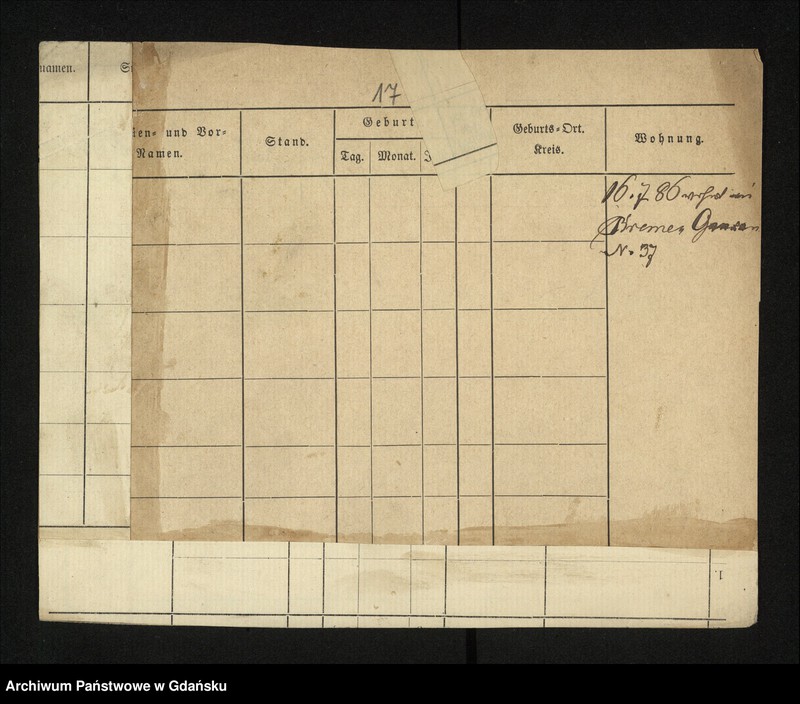 namen.
17
ien= und Vor=
Namen.
Stand.
Geburt
Tag.
Monat.
Geburts=Ort.
Kreis.
Wohnung.
16.7 86
Bremen
No 37
1.
Archiwum Państwowe w Gdańsku